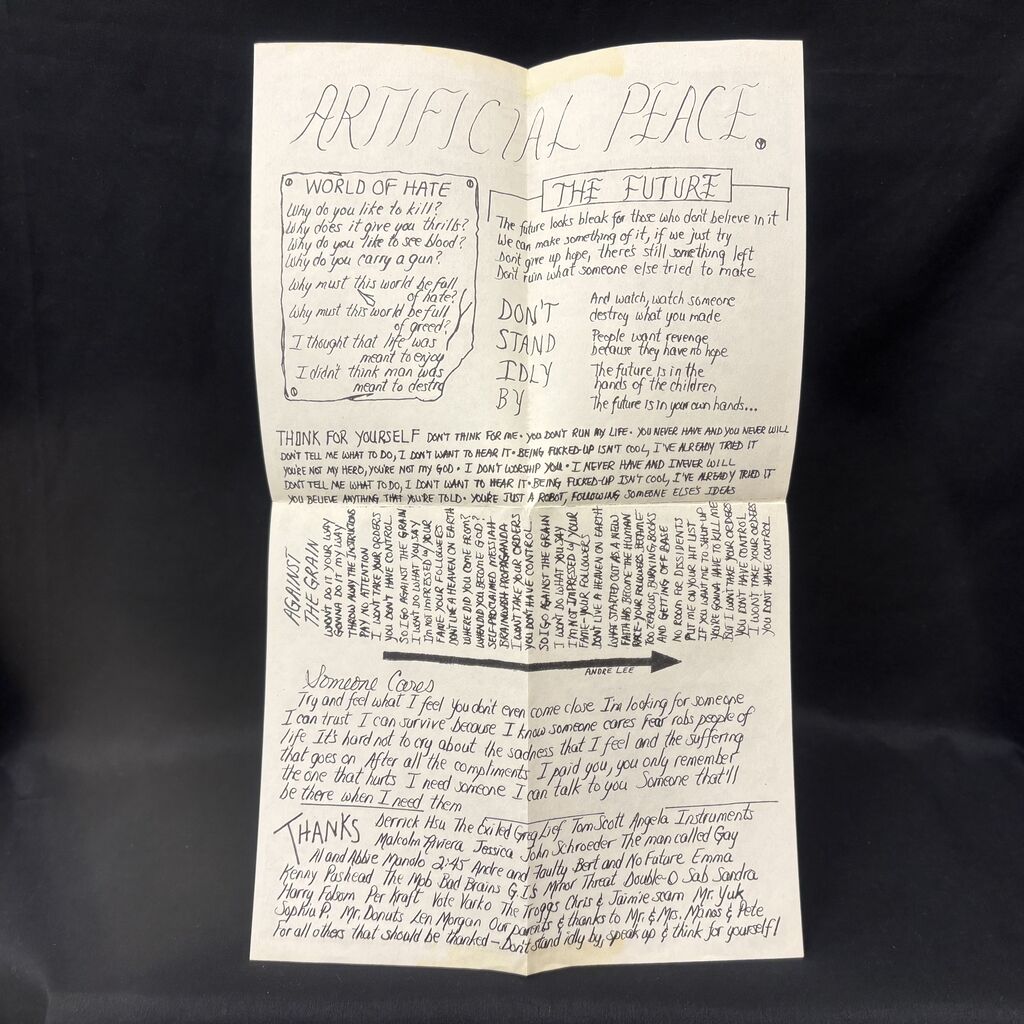 ARTIFICIAL PEACE.
WORLD OF HATE
Why do you like to kill?
Why does it give you thrills?
Why do you like to see blood?
Why do you carry a gun?
Why must this world be full
of hate?
Why must this world be full
of greed?
I thought that life was
meant to enjoy
I didn't think man was
meant to destroy
THE FUTURE
The future looks bleak for those who don't believe in it
We can make something of it, if we just try
Don't give up hope, there's still something left
Don't ruin what someone else tried to make
DON'T
STAND
IDLY
BY
And watch, watch someone
destroy what you made
People want revenge
because they have no hope
The future is in the
hands of the children
The future is in your own hands...
THINK FOR YOURSELF DON'T THINK FOR ME • YOU DON'T RUN MY LIFE • YOU NEVER HAVE AND YOU NEVER WILL
DON'T TELL ME WHAT TO DO, I DON'T WANT TO HEAR IT • BEING FUCKED-UP ISN'T COOL, I'VE ALREADY TRIED IT
YOU'RE NOT MY HERO, YOU'RE NOT MY GOD • I DON'T WORSHIP YOU • I NEVER HAVE AND I NEVER WILL
DON'T TELL ME WHAT TO DO, I DON'T WANT TO HEAR IT • BEING FUCKED-UP ISN'T COOL, I'VE ALREADY TRIED IT
YOU BELIEVE ANYTHING THAT YOU'RE TOLD • YOU'RE JUST A ROBOT, FOLLOWING SOMEONE ELSE'S IDEAS
AGAINST
THE GRAIN
WON'T DO IT YOUR WAY
GONNA DO IT MY WAY
THROW AWAY THE INSTRUCTIONS
PAY NO ATTENTION
I WON'T TAKE YOUR ORDERS
YOU DON'T HAVE CONTROL
SO I GO AGAINST THE GRAIN
I WON'T DO WHAT YOU SAY
I'M NOT IMPRESSED W/ YOUR
FAME - YOUR FOLLOWERS
DON'T LIVE A HEAVEN ON EARTH
WHERE DID YOU COME FROM?
WHEN DID YOU BECOME GOD?
SELF-PROCLAIMED MESSIAH
BRAINWASH PROPAGANDA
I WON'T TAKE YOUR ORDERS
YOU DON'T HAVE CONTROL
SO I GO AGAINST THE GRAIN
I WON'T DO WHAT YOU SAY
I'M NOT IMPRESSED W/ YOUR
FAME - YOUR FOLLOWERS
DON'T LIVE A HEAVEN ON EARTH
WHAT STARTED OUT AS A NEW
FAITH HAS BECOME THE HUMAN
RACE - YOUR FOLLOWERS, BECAME
TOO ZEALOUS, BURNING, BOOKS
AND GETTING OFF BASE
NO ROOM FOR DISSIDENTS
PUT ME ON YOUR HIT LIST
IF YOU WANT ME TO SHUT-UP
YOU'RE GONNA HAVE TO KILL ME
BUT I WON'T TAKE YOUR ORDERS
YOU DON'T HAVE CONTROL
I WON'T TAKE YOUR ORDERS
YOU DON'T HAVE CONTROL
ANDRE LEE
Someone Cares
Try and feel what I feel you don't even come close I'm looking for someone
I can trust I can survive because I know someone cares Fear robs people of
life It's hard not to cry about the sadness that I feel and the suffering
that goes on After all the compliments I paid you, you only remember
the one that hurts I need someone I can talk to you Someone that'll
be there when I need them
THANKS Derrick Hsu The Exiled Greg Lief Tom Scott Angela Instruments
Malcolm Riviera Jessica John Schroeder The man called Gay
Al and Abbie Manolo 2:45 Andre and Faulty Bert and No Future Emma
Kenny Pushead The Mob Bad Brains G.I.'s Minor Threat Double-O Sab Sandra
Harry Folsom Per Kraft Vote Varko The Troggs Chris & Jaimie scam Mr. Yuk
Sophia P. Mr. Donuts Len Morgan Our parents & thanks to Mr. & Mrs. Manos & Pete
For all others that should be thanked - Don't stand idly by, speak up & think for yourself!